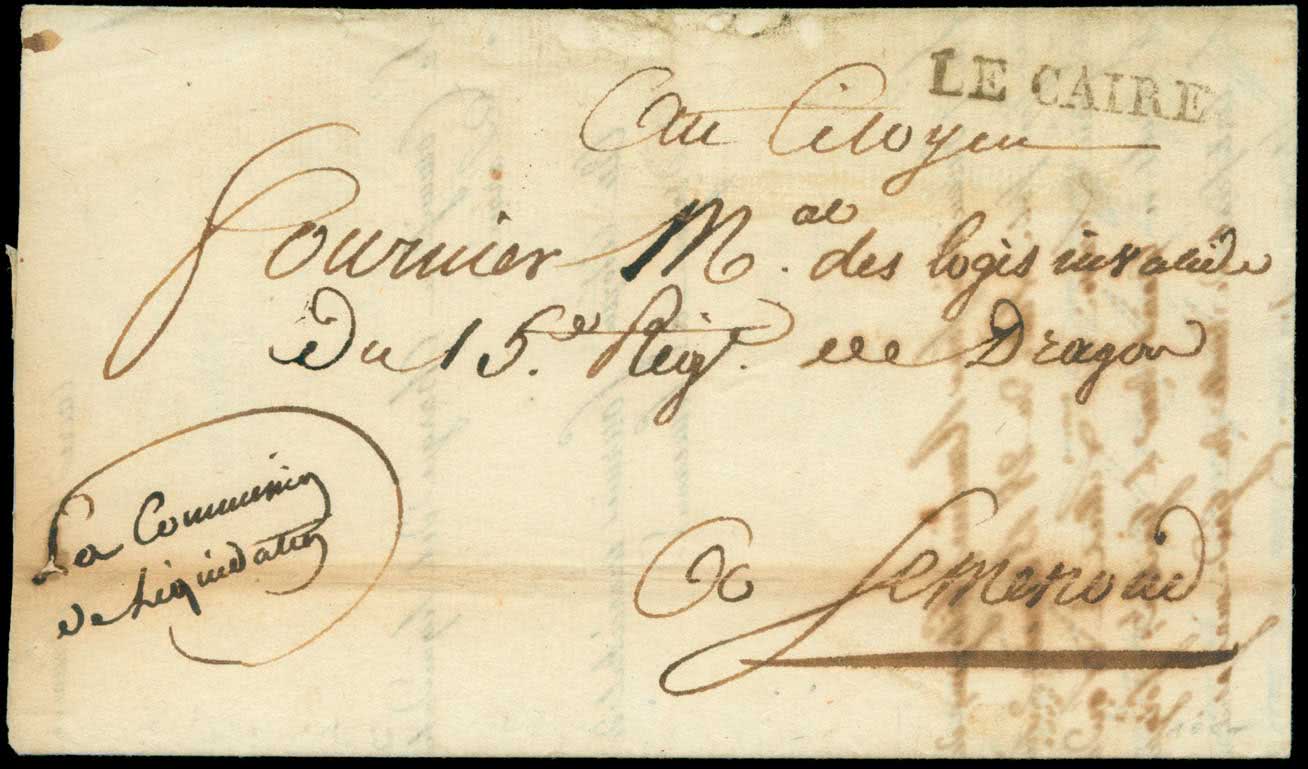 LE CAIRE
Au Citoyen
fournier M.al des logis invalide
Du 15.e Régt. de Dragon
La Commission
de Liquidation
A Semenoud